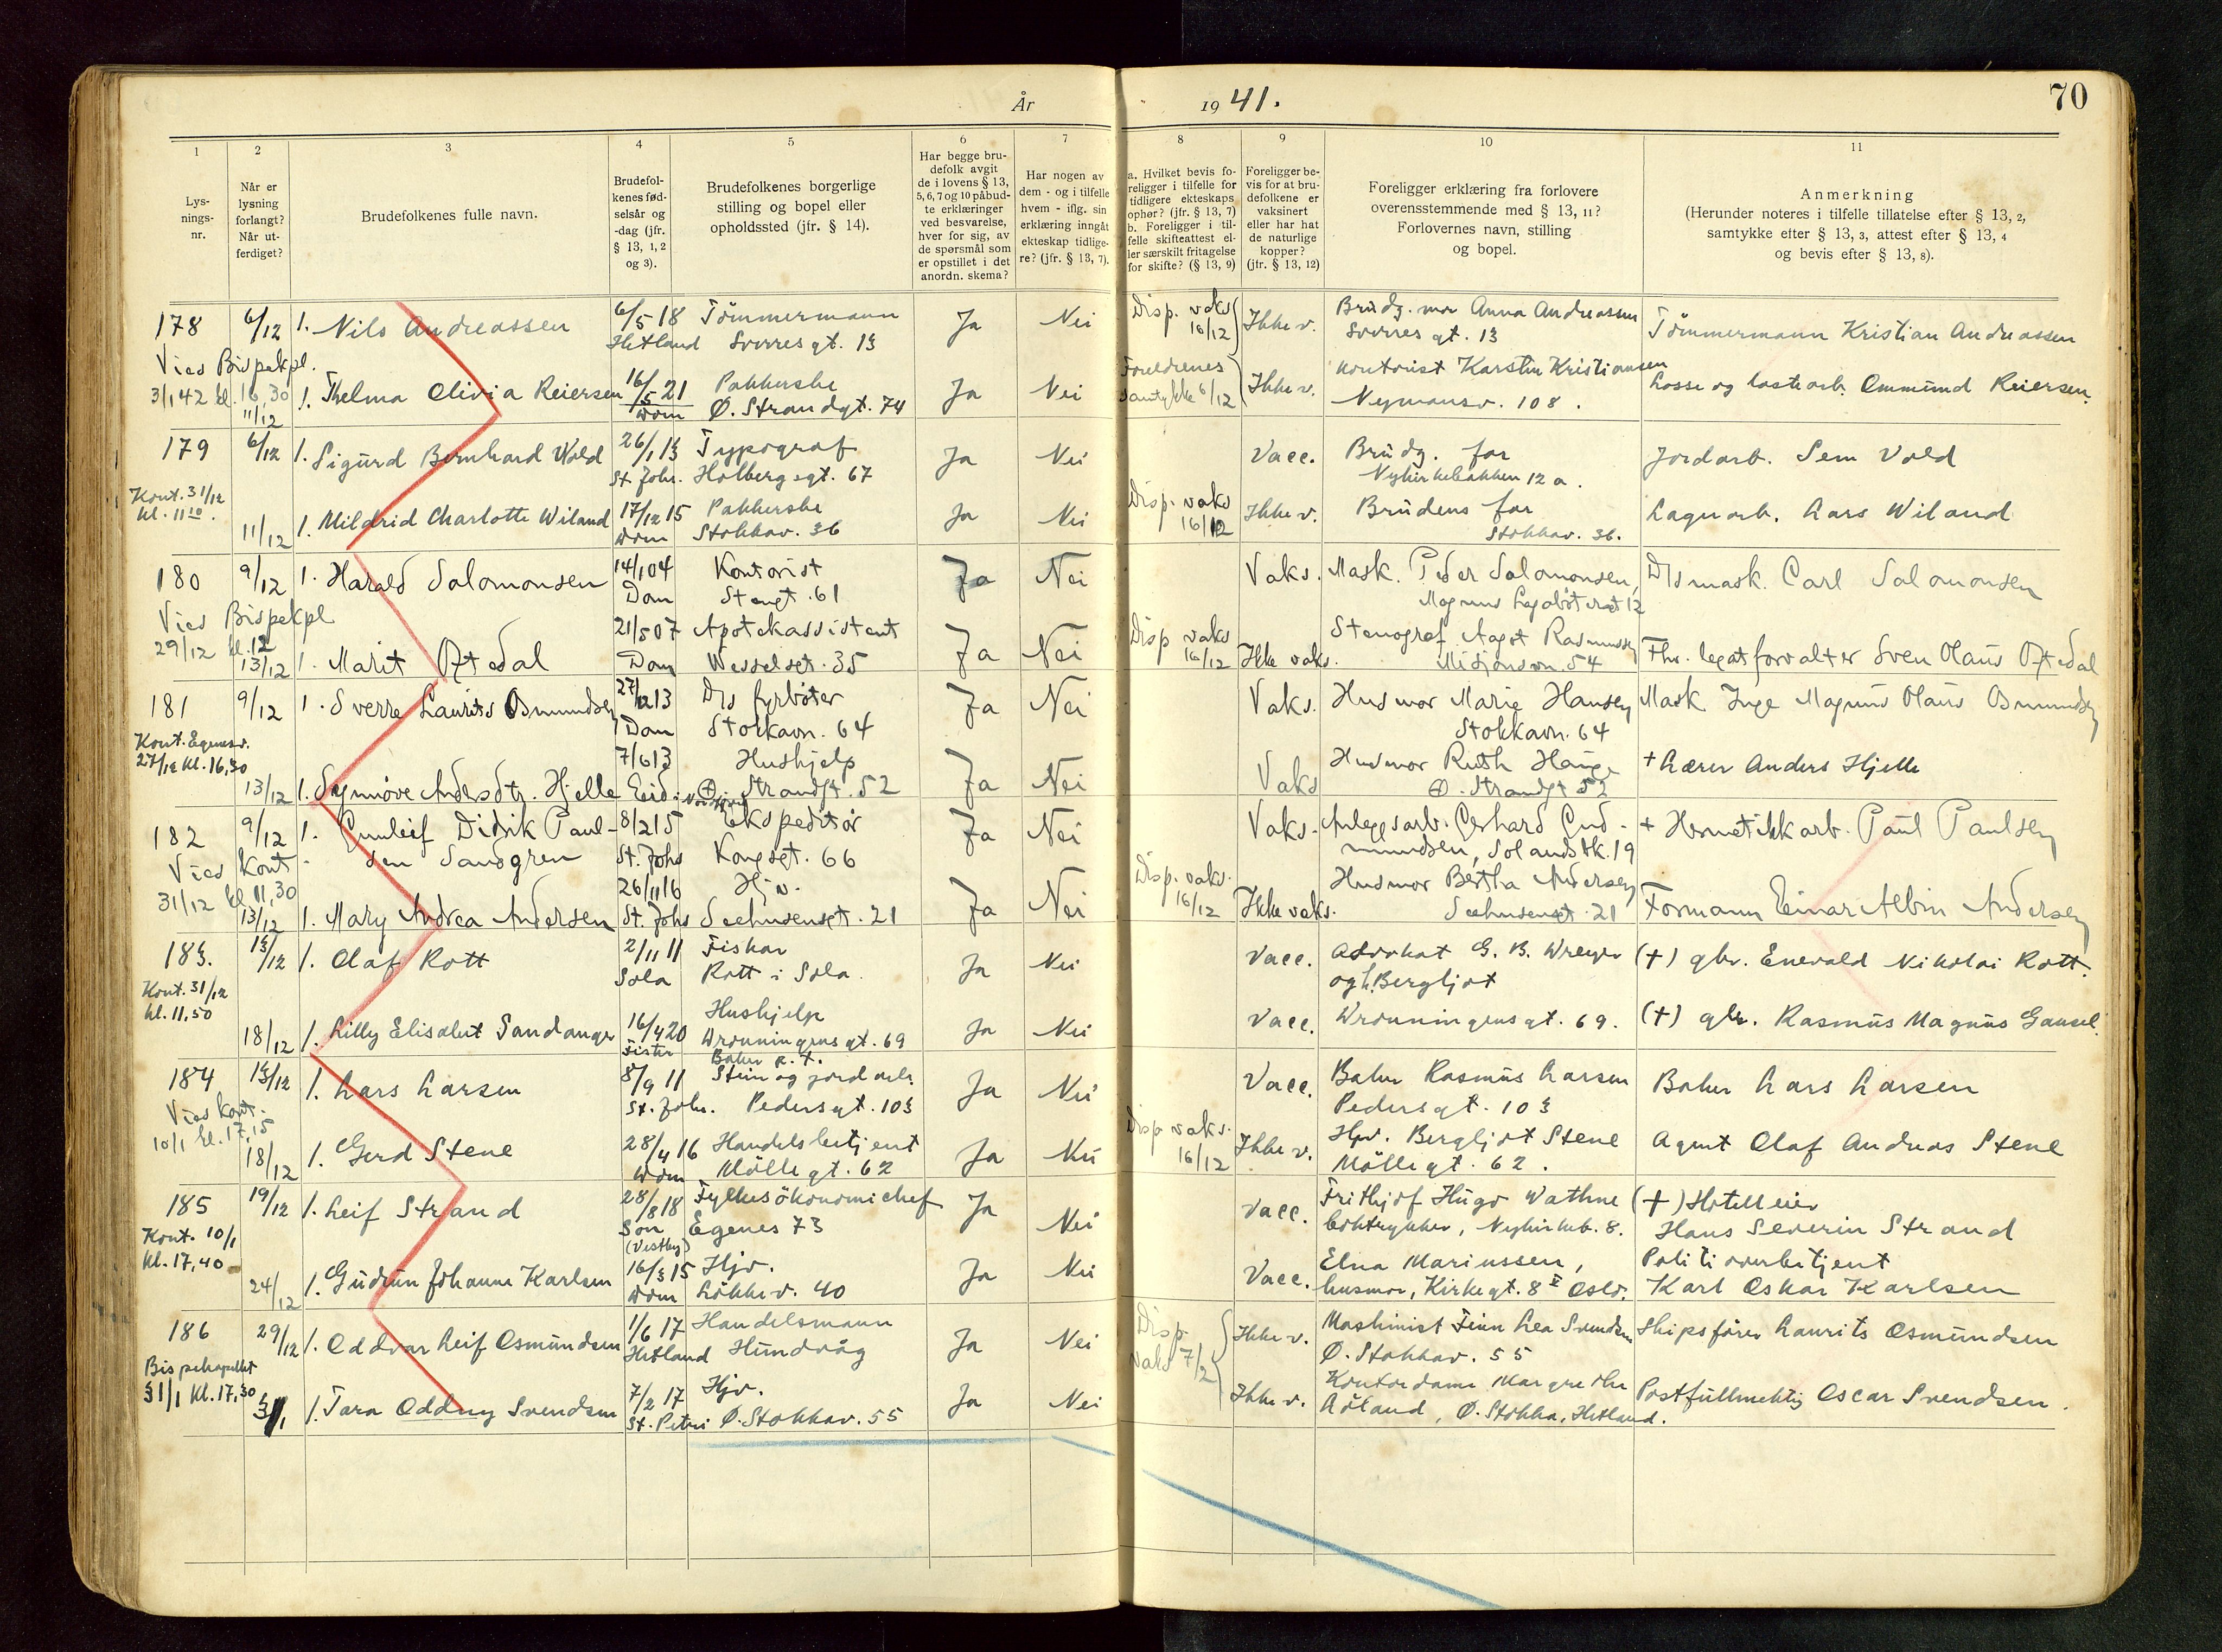 År 1941.
70
1
2
3
4
5
6
7
8
9
10
11
Lys-
nings-
nr.
Når er
lysning
forlangt?
Når ut-
ferdiget?
Brudefolkenes fulle navn.
Brudefol-
kenes fød-
selsår og
-dag (jfr.
§ 13, 1, 2
og 3).
Brudefolkenes borgerlige
stilling og bopel eller
opholdssted (jfr. § 14).
Har begge bru-
defolk avgit
de i lovens § 13,
5, 6, 7 og 10 påbud-
te erklæringer
ved besvarelse,
hver for sig, av
de spørsmål som
er opstillet i det
anordn. skema?
Har nogen av
dem - og i tilfelle
hvem - iflg. sin
erklæring inngåt
ekteskap tidlige-
re? (jfr. § 13, 7).
a. Hvilket bevis fo-
religger i tilfelle for
tidligere ekteskaps
ophør? (jfr. § 13, 7)
b. Foreligger i til-
felle skifteattest el-
ler særskilt fritagelse
for skifte? (§ 13, 9)
Foreligger be-
vis for at bru-
defolkene er
vaksinert
eller har hat
de naturlige
kopper?
(jfr. § 13, 12)
Foreligger erklæring fra forlovere
overensstemmende med § 13, 11?
Forlovernes navn, stilling
og bopel.
Anmerkning
(Herunder noteres i tilfelle tillatelse efter § 13, 2,
samtykke efter § 13, 3, attest efter § 13, 4
og bevis efter § 13, 8).
178 6/12 1. Nils Andreassen 6/5 18 Tömmermann Ja Nei Disp. vaks Ikke v. Brudg. mor Anna Andreassen Tömmermann Kristian Andreassen
Hetland Sverresgt. 13 16/12 Sverresgt. 13
Vies Bispekpl.
3/1 42 kl. 16,30 1. Thelma Olivia Reiersen 16/5 21 Pakkerske Ja Nei Foreldrenes Ikke v. Kontorist Karsten Kristiansen Losse og lastearb. Ommund Reiersen.
11/12 Dom Ø. Strandgt. 74 Samtykke 6/12 Nymansv. 108.
179 6/12 1. Sigurd Bernhard Vold 26/1 13 Typograf Ja Nei Vacc. Brudg. far Jordarb. Sem Vold
St. Johs. Holbergsgt. 67 Nykirkebakken 12 a.
Kont. 31/12
kl. 11 10. 1. Mildrid Charlotte Wiland 17/12 15 Pakkerske Ja Nei Disp. vaks Ikke v. Brudens far Lagerarb. Lars Wiland
11/12 Dom Stokkav. 36 16/12 Stokkav. 36.
180 9/12 1. Harald Salomonsen 14/1 04 Kontorist Ja Nei Vaks. Mask. Peder Salomonsen, D/s mask. Carl Salomonsen
Dom Stengt. 61 Magnus Lagabøtersgt 12
Vies Bispekpl
29/12 kl. 12 21/5 07 Apotekassistent Disp vaks Stenograf Aagot Rasmussen
13/12 1. Marit Oftedal Dom Wesselsgt. 35 Ja Nei 16/12 Ikke vaks. Misjonsvn. 54 Fhv. legatforvalter Sven Olaus Oftedal
181 9/12 1. Sverre Laurits Osmundsen 27/12 13 D/s fyrbøter Ja Nei Vaks. Husmor Marie Hansen Mask Inge Magnus Olaus Osmundsen
Dom Stokkavn. 64 Stokkavn. 64
Kont. Egenesv.
27/12 kl. 16,30 7/6 13 Hushjelp Husmor Ruth Hauge + Lærer Anders Hjelle
13/12 1. Synnøve Andersdtr. Hjelle Eid. Nordfjord Ø. Strandgt. 52 Ja Nei Vaks Ø. Strandgt 52
182 9/12 1. Gunleif Didrik Paul- 8/2 15 Ekspeditør Ja Nei Vaks. Anleggsarb. Gerhard Gud- + Hermetikkarb. Paul Paulsen
sen Sandgren St. Johs Kongsgt. 66 mundsen, Solandsbk. 19
Vies Kont
31/12 kl. 11,30 26/11 16 Hjv. Disp. vaks. Husmor Bertha Andersen
13/12 1. Mary Andrea Andersen St. Johs Seehusensgt. 21 Ja Nei 16/12 Ikke vaks. Seehusensgt. 21 Formann Einar Albin Andersen
183. 13/12 1. Olaf Rott 2/11 11 Fisker Ja Nei Vacc. Advokat G. B. (+) gbr. Enevald Nikolai Rott.
Sola Rott i Sola. og h. Bergljot
Kont. 31/12
kl. 11,50 Hushjelp
18/12 1. Lilly Elisabet Sandanger 16/4 20 69 Ja Nei Vacc. 69. (+) gbr. Rasmus Magnus Gausel.
Fister
184 13/12 1. Lars Larsen 8/9 11 Baker p. t. Stein og jordarb. Ja Nei Vacc. Baker Rasmus Larsen Baker Lars Larsen
St. Johs. Pedersgt. 103 Pedersgt. 103
Vies Kont.
10/1 kl. 17,15 1. Gerd Stene 28/4 16 Handelsbetjent Ja Nei Disp vaks. Ikke v. Hjv. Bergljot Stene Agent Olaf Andreas Stene
18/12 Dom Møllegt. 62 16/12 Møllegt. 62.
185 19/12 1. Leif Strand 28/8 18 Fylkesökonomichef Ja Nei Vacc. Frithjof Hugo Wathne (+) Hotelleier
Son (Vestby) Egenes 73 boktrykker, Nykirkeb. 8. Hans Severin Strand
Kont. 10/1
kl. 17,40 16/3 15 Hjv. Elna Mariussen, Politioverbetjent
24/12 1. Gudrun Johanne Karlsen Dom Løkkev. 40 Ja Nei Vacc. husmor, Kirkegt. 8 Oslo. Karl Oskar Karlsen
186 29/12 1. Oddvar Leif Osmundsen 1/6 17 Handelsmann Ja Nei Disp. Ikke v. Maskinist Finn Lea Svendsen Skipsfører Laurits Osmundsen
Hetland Hundvåg vaks 7/2 Ø. Stokkav. 55
Bispekapellet
31/1 kl. 17,30 7/2 17 Hjv. Kontordame Margrethe
3/1 1. Tora Oddny Svendsen St. Petri Ø. Stokkav. 55 Ja Nei Ikke v. Åsland, Ø. Stokka, Hetland. Postfullmektig Oscar Svendsen.